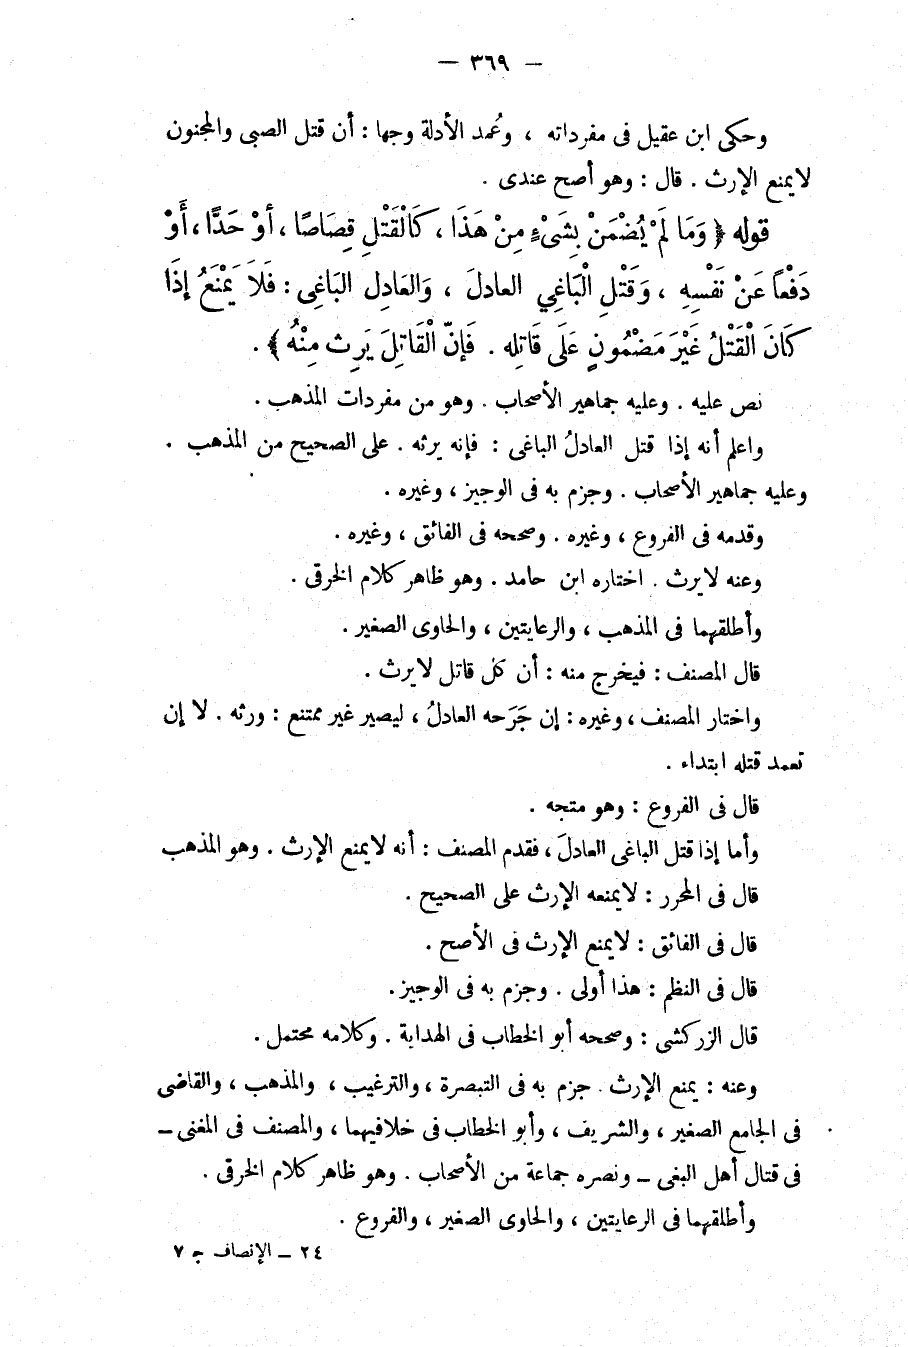 — ٣٦٩ —
وحكى ابن عقيل فى مفرداته ، وعُمد الأدلة وجها : أن قتل الصبى والمجنون
لايمنع الإرث . قال : وهو أصح عندى .
قوله ﴿ وَمَا لَمْ يُضْمَنْ بِشَىْءٍ مِنْ هَذَا ، كَالْقَتْلِ قِصَاصًا ، أَوْ حَدًّا ، أَوْ
دَفْعاً عَنْ نَفْسِهِ ، وَقَتْلِ الْبَاغِي العادلَ ، وَالعَادِل البَاغِى : فَلاَ يَمْنَعُ إذَا
كَانَ الْقَتْلُ غَيْرَ مَضْمُونٍ عَلَى قَاتِله . فَإنّ الْقَاتِلَ يَرِث مِنْهُ ﴾ .
نص عليه . وعليه جماهير الأصحاب . وهو من مفردات المذهب .
واعلم أنه إذا قتل العادلُ الباغى : فإنه يرثه . على الصحيح من المذهب .
وعليه جماهير الأصحاب . وجزم به فى الوجيز ، وغيره .
وقدمه فى الفروع ، وغيره . وصححه فى الفائق ، وغيره .
وعنه لايرث . اختاره ابن حامد . وهو ظاهر كلام الخرقى .
وأطلقهما فى المذهب ، والرعايتين ، والحاوى الصغير .
قال المصنف : فيخرج منه : أن كل قاتل لايرث .
واختار المصنف ، وغيره : إن جَرَحه العادلُ ، ليصير غير ممتنع : ورثه . لا إن
تعمد قتله ابتداء .
قال فى الفروع : وهو متجه .
وأما إذا قتل الباغى العادلَ ، فقدم المصنف : أنه لايمنع الإرث . وهو المذهب
قال فى المحرر : لايمنعه الإرث على الصحيح .
قال فى الفائق : لايمنع الإرث فى الأصح .
قال فى النظم : هذا أولى . وجزم به فى الوجيز .
قال الزركشى : وصححه أبو الخطاب فى الهداية . وكلامه محتمل .
وعنه : يمنع الإرث . جزم به فى التبصرة ، والترغيب ، والمذهب ، والقاضى
فى الجامع الصغير ، والشريف ، وأبو الخطاب فى خلافيهما ، والمصنف فى المغنى –
فى قتال أهل البغى – ونصره جماعة من الأصحاب . وهو ظاهر كلام الخرقى .
وأطلقهما فى الرعايتين ، والحاوى الصغير ، والفروع .
٢٤ – الإنصاف ج ٧